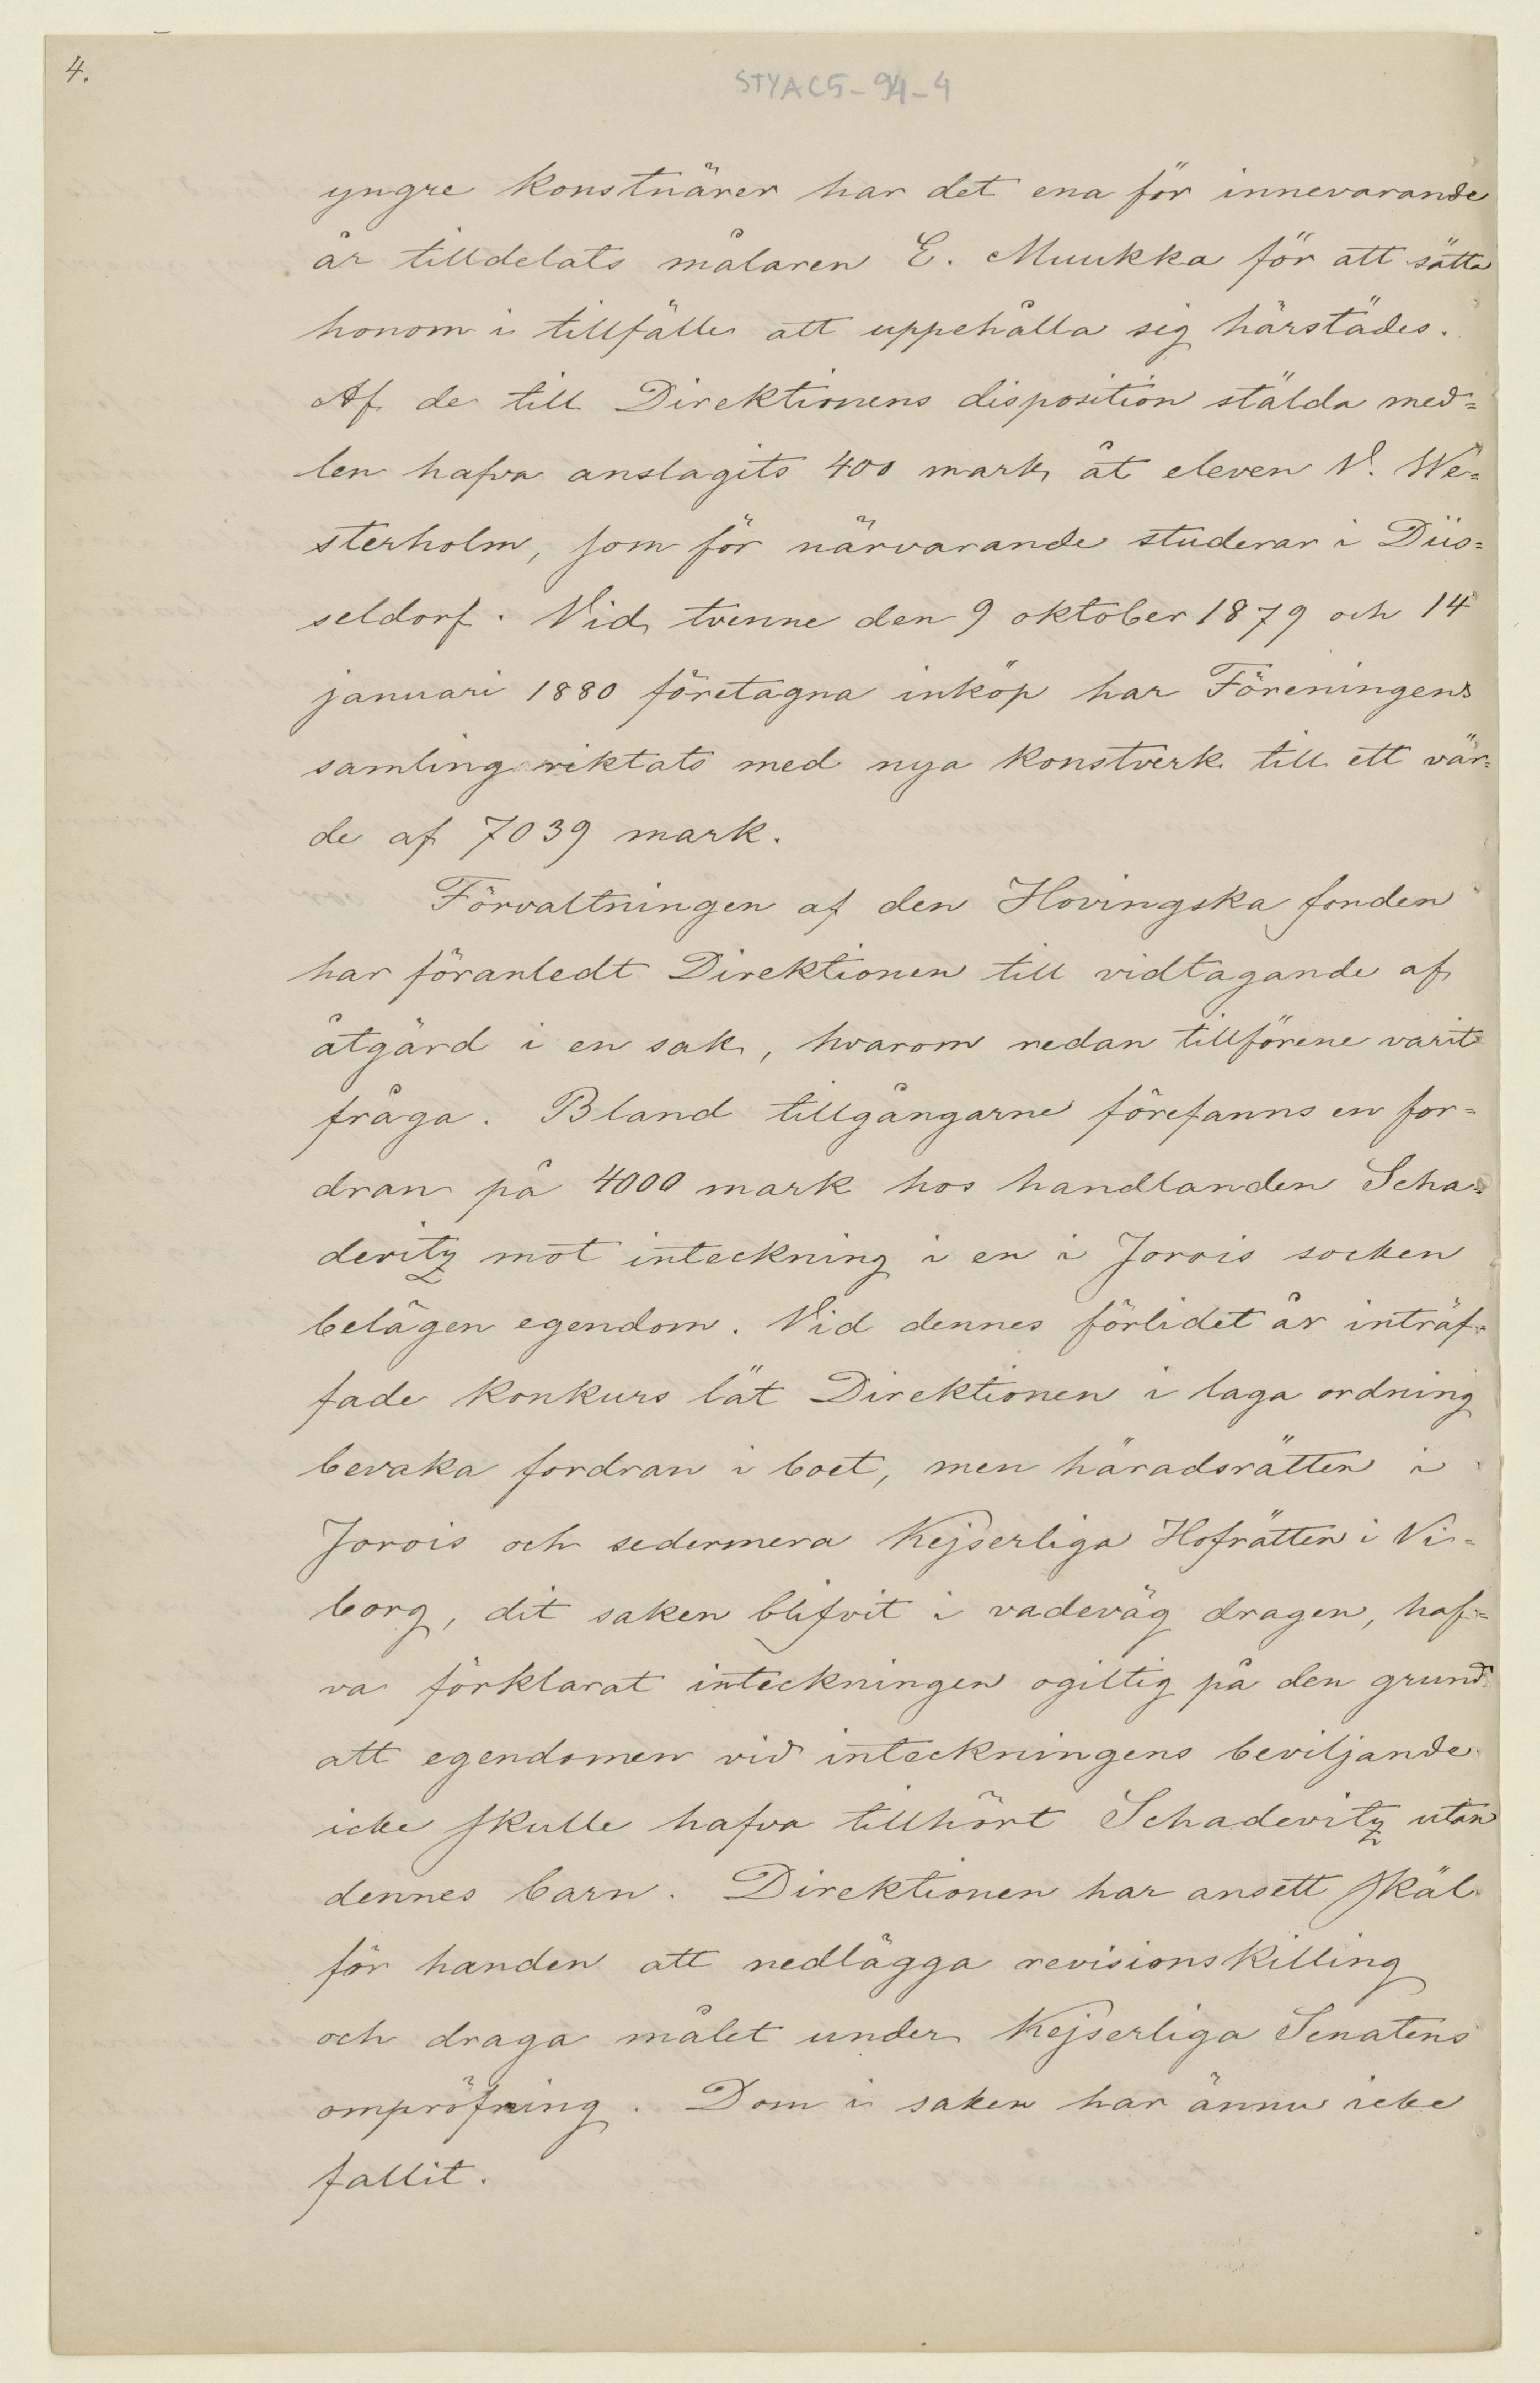 4.
STYAC5-94-4
yngre konstnärer har det ena för innevarande
år tilldelats målaren E. Muukka för att sätta
honom i tillfälle att uppehålla sig härstädes.
Af de till Direktionens disposition stälda med=
len hafva anslagits 400 mark åt eleven V. We=
sterholm, som för närvarande studerar i Düs=
seldorf. Vid tvenne den 9 oktober 1879 och 14
januari 1880 företagna inköp har Föreningens
samling riktats med nya konstverk till ett vär=
de af 7039 mark.
Förvaltningen af den Hovingska fonden
har föranledt Direktionen till vidtagande af
åtgärd i en sak, hvarom redan tillförene varit
fråga. Bland tillgångarne förefanns en for=
dran på 4000 mark hos handlanden Scha=
devitz mot inteckning i en i Jorois socken
belägen egendom. Vid dennes förlidet år inträf=
fade konkurs lät Direktionen i laga ordning
bevaka fordran i boet, men häradsrätten i
Jorois och sedermera Kejserliga Hofrätten i Vi=
borg, dit saken blifvit i vadeväg dragen, haf=
va förklarat inteckningen ogiltig på den grund
att egendomen vid inteckningens beviljande
icke skulle hafva tillhört Schadevitz utan
dennes barn. Direktionen har ansett skäl
för handen att nedlägga revisionskilling
och draga målet under Kejserliga Senatens
ompröfning. Dom i saken har ännu icke
fallit.